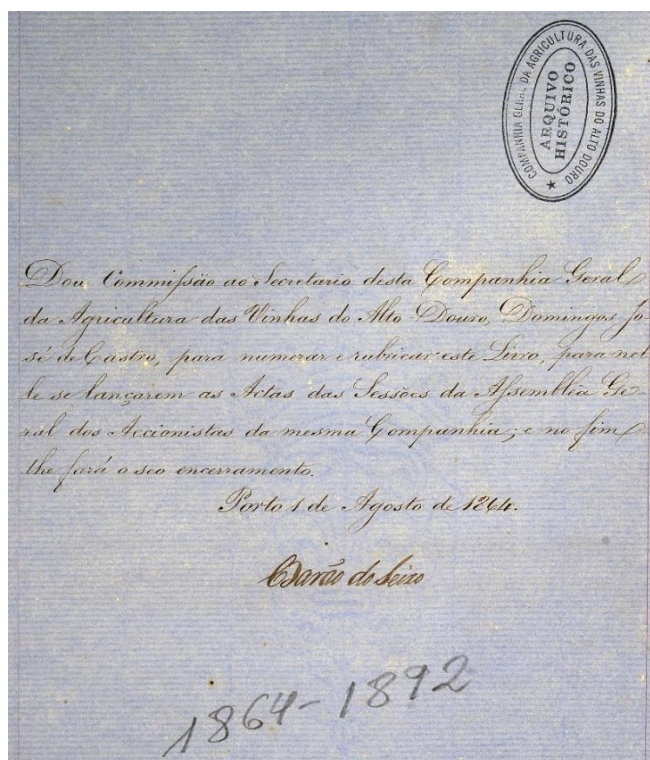 COMPANHIA GERAL DA AGRICULTURA DAS VINHAS DO ALTO DOURO
ARQUIVO
HISTÓRICO
Dou Commissão ao Secretario desta Companhia Geral
da Agricultura das Vinhas do Alto Douro, Domingos Jo-
sé de Castro, para numerar e rubricar este Livro, para nel
le se lançarem as Actas das Sessões da Assemblêa Ge-
ral dos Accionistas da mesma Companhia; e no fim
lhe fará o seo encerramento.
Porto 1 de Agosto de 1864.
Barão do Seixo
1864-1892